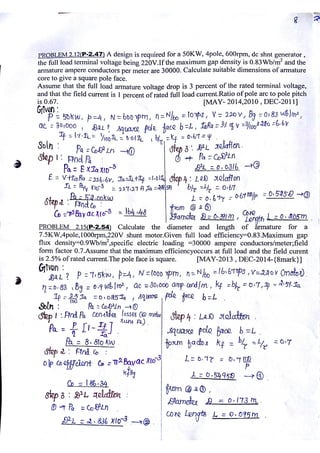 8
PROBLEM 2.12(P-2.47) A design is required for a 50KW, 4pole, 600rpm, dc shnt generator ,
the full load terminal voltage being 220V.If the maximum gap density is 0.83Wb/m² and the
armature ampere conductors per metre are 30000. Calculate suitable dimensions of armature
core to give a square pole face.
Assume that the full load armature voltage drop is 3 percent of the rated terminal voltage,
and that the field current is 1 percent of rated full load current.Ratio of pole arc to pole pitch
is 0.67. [MAY- 2014,2010 , DEC-2011]
Given:
P = 50KW, p=4, N = 600 rpm, n = N/60 = 10 rps, V = 220V, Bg = 0.83 wb/m²,
ac = 30,000, D&L? square pole face b=L,
Soln :
Pa = CoD²Ln → ①
Step 1 : Find Pa
Pa = E x Ia x 10⁻³
Step 2 : Find Co :
Co = π² Bav ac x 10⁻³
Step 3 : D²L relation.
① → Pa = CoD²Ln
D²L = 0.0316 → ②
Step 4 : L&D relation
b/τ = L/τ = 0.67
from ② & ③
Diameter D = 0.39m, Core Length L = 0.205m
PROBLEM 2.15(P-2.54) Calculate the diameter and length of armature for a
7.5KW,4pole,1000rpm,220V shunt motor.Given full load efficiency=0.83.Maximum gap
flux density=0.9Wb/m²,specific electric loading =30000 ampere conductors/meter;field
form factor 0.7.Assume that the maximum efficiencyoccurs at full load and the field current
is 2.5% of rated current.The pole face is square. [MAY-2013 , DEC-2014-{8mark}]
Given :
D&L ? P = 7.5KW, p=4, N = 1000 rpm, n = N/60 = 16.67rps, V=220V (motor)
η = 0.83, Bg = 0.9 wb/m², ac = 30,000 amp cond/m, Kf = 0.7,
square pole face b = L.
Soln : Pa = CoD²Ln → ①
Step 1 : Find Pa
Pa = 8.810 KW
Step 2 : Find Co :
o/p coefficient Co = π² Bav ac x 10⁻³
Co = 186.54
Step 3 : D²L relation :
① → Pa = CoD²Ln
D²L = 2.836 x 10⁻³ → ②
Step 4 : L&D relation.
square pole face b = L.
form factor Kf = b/τ = L/τ = 0.7
L = 0.7τ = 0.7 πD/p
L = 0.5495D → ③
from ② & ③,
Diameter D = 0.173 m.
Core Length L = 0.095 m.